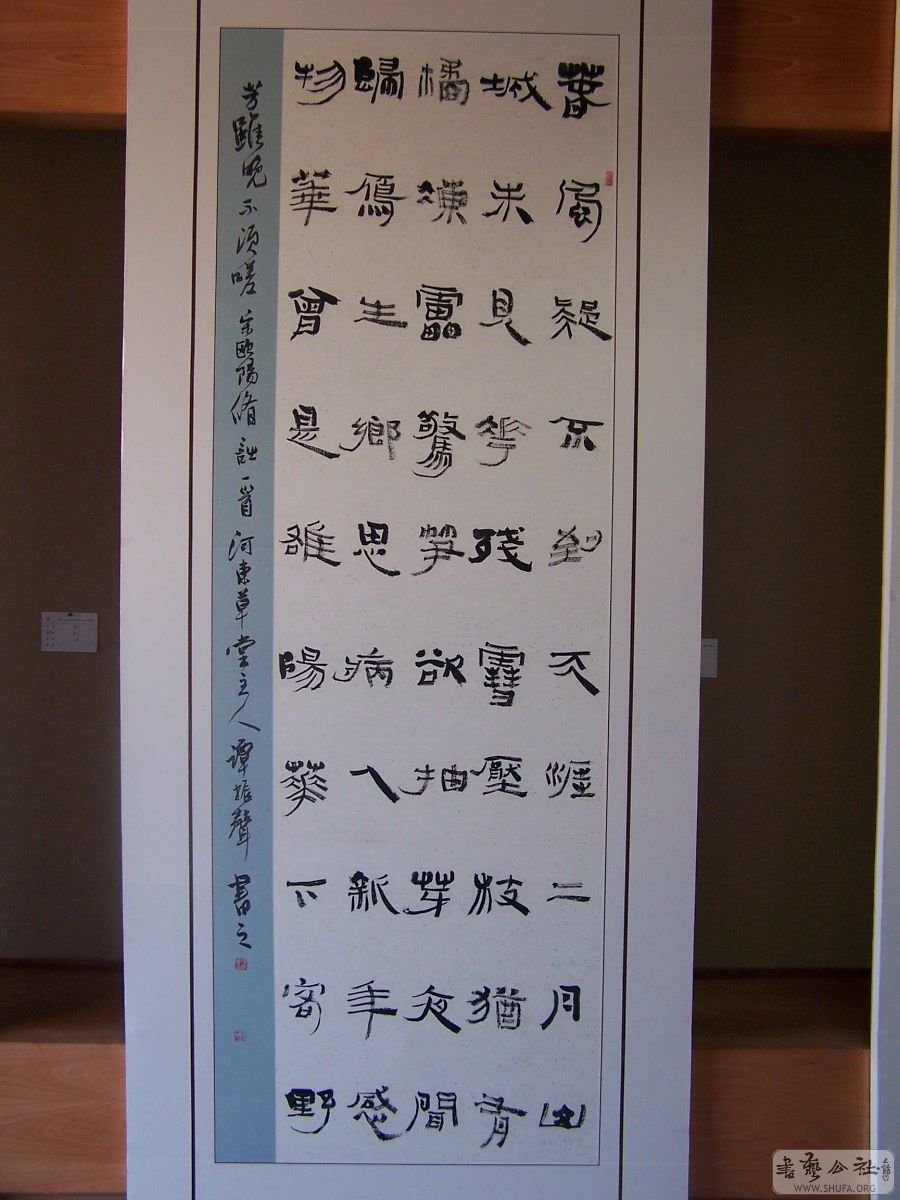 春風疑不到天涯二月山
城未見花殘雪壓枝猶有
橘凍靁驚笋欲抽芽夜聞
歸鴈生鄉思病入新年感
物華曾是雒陽華下客野
芳雖晚不須嗟 宋歐陽脩詩一首 河東草堂主人譚振聲書之
書藝公社
WWW.SHUFA.ORG